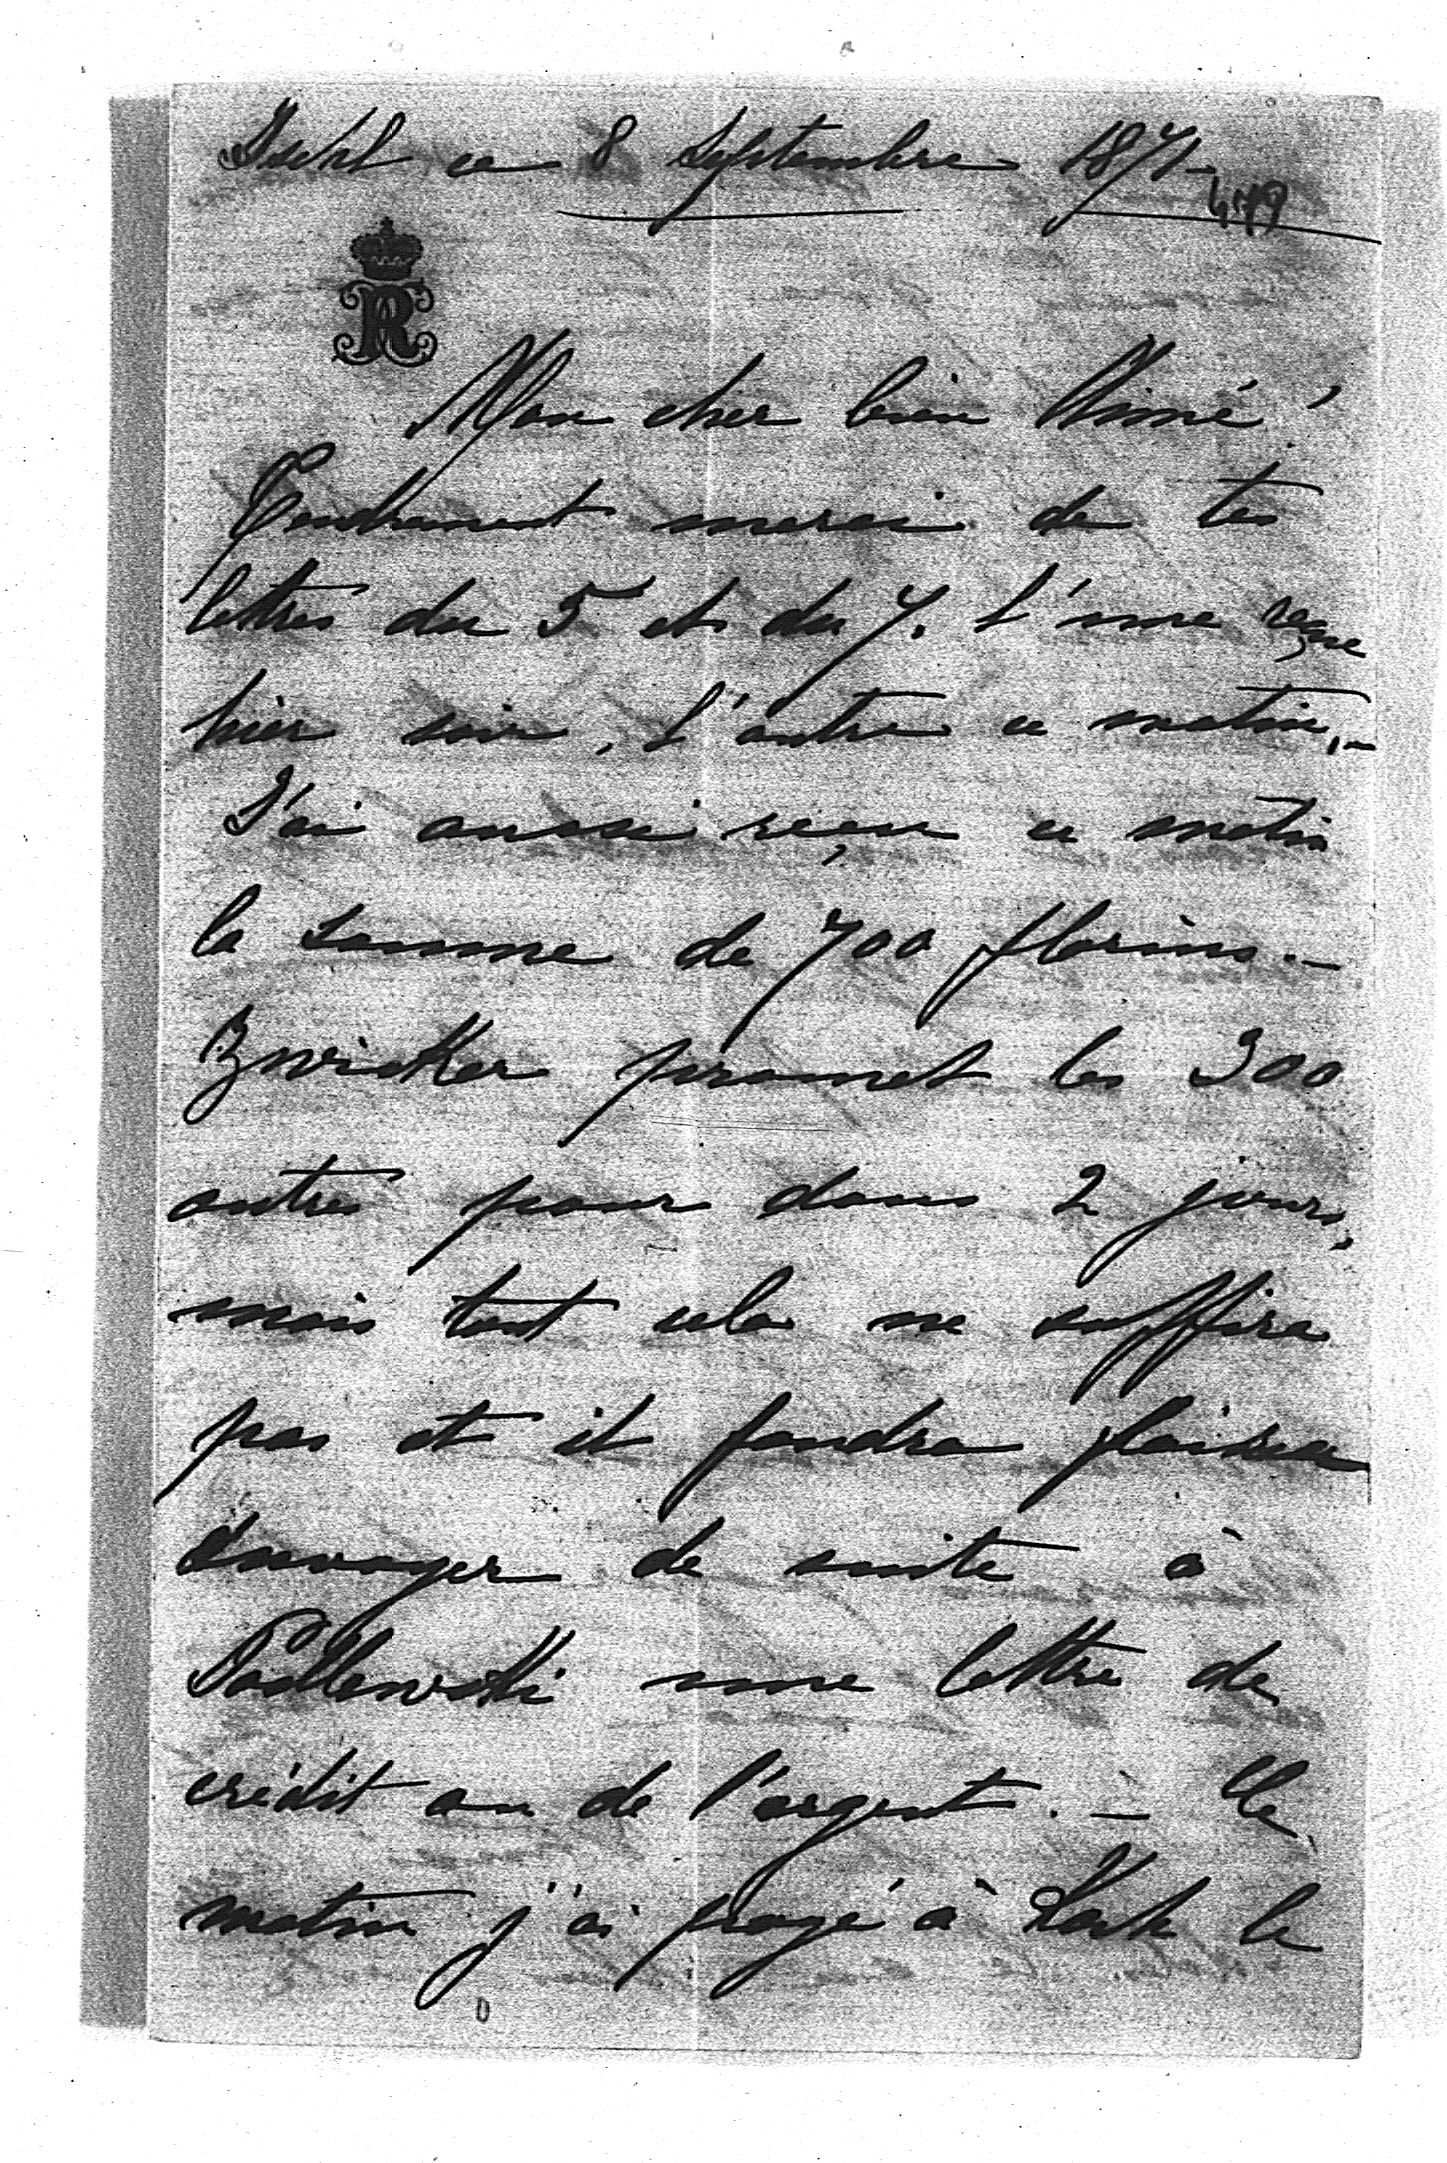 Ischl ce 8 Septembre 1871-
449
R
Mon cher bien Aimé!
Tendrement merci de tes
lettres du 5 et du 7. l'une reçue
hier soir, l'autre ce matin.-
J'ai aussi reçu ce matin
la somme de 700 florins.-
Zwicker promet les 300
autres pour dans 2 jours,
mais tout cela ne suffira
pas et il faudra
envoyer de suite à
Podlewski une lettre de
crédit ou de l'argent. - Ce
matin j'ai payé à le